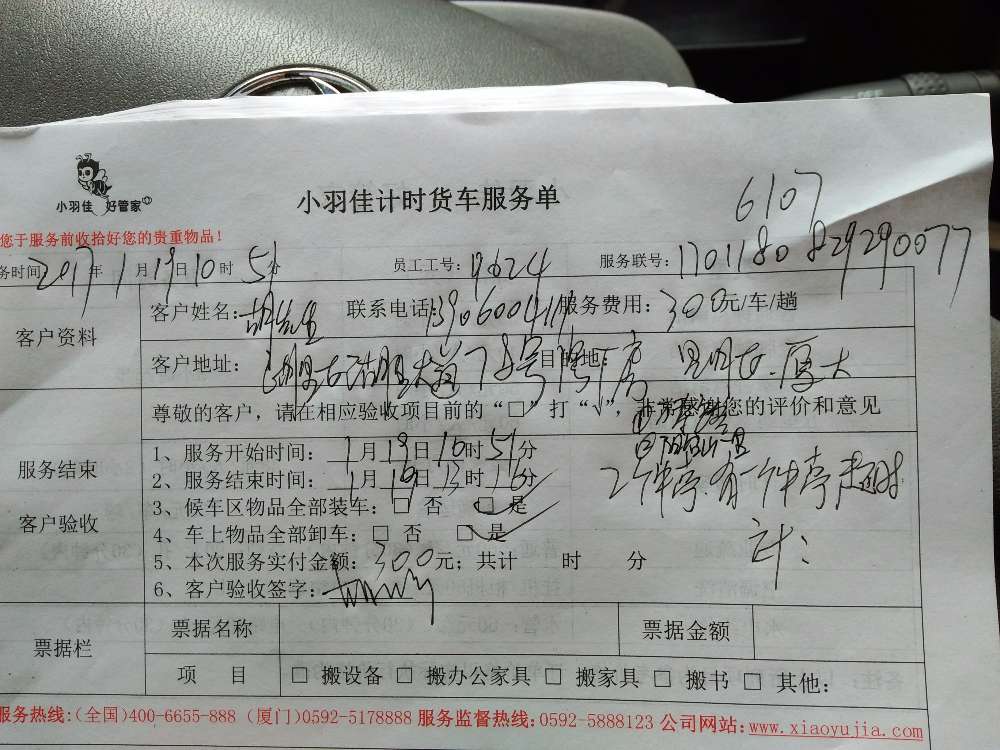 小羽佳 好管家
小羽佳计时货车服务单
6107
您于服务前收拾好您的贵重物品！
务时间：2017年1月19日10时51分 员工工号： 服务联号：
客户资料
客户姓名：胡先生 联系电话： 服务费用：300元/车/趟
客户地址： 大道78号 目的地： 厦大
尊敬的客户，请在相应验收项目前的“□”打“√”，非常感谢您的评价和意见
服务结束
客户验收
1、服务开始时间：1月19日10时51分
2、服务结束时间：1月19日13时16分
3、候车区物品全部装车：□ 否 □ 是
4、车上物品全部卸车：□ 否 □ 是
5、本次服务实付金额：300元；共计 时 分
6、客户验收签字：
2个停 有一个停 超时
计：
票据栏
票据名称 票据金额
项 目 □ 搬设备 □ 搬办公家具 □ 搬家具 □ 搬书 □ 其他：
服务热线：(全国)400-6655-888 (厦门)0592-5178888 服务监督热线：0592-5888123 公司网站：www.xiaoyujia.com